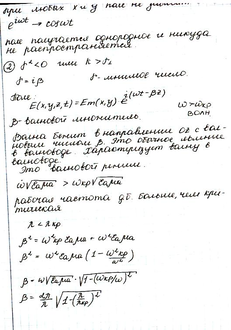 при любых x и y поле не
e^iωt → cosωt
поле получается однородное и никуда
не распространяется.
② γ² < 0 или k > γ₂
γ = iβ γ - мнимое число.
Поле:
E(x,y,z,t) = Em(x,y) e^i(ωt-βz)
ω > ωкр
волн
β - волновой множитель.
Волна бежит в направлении oz с вол-
новым числом β. Это обычное явление
в волноводе. Характеризует волну в
волноводе.
Это волновой режим.
ω√εaμa > ωкр√εaμa
рабочая частота д.б. больше, чем кри-
тическая
λ < λкр
β² = ω²кр εaμa + ω² εaμa
β² = ω² εaμa (1 - ω²кр/ω²)
β = ω√εaμa · √1-(ωкр/ω)²
β = 2π/λ √1-(λ/λкр)²